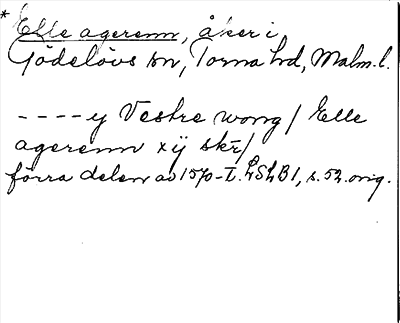 * Elle agerenn, åker i
Gödelövs sn, Torna hd, Malm. l.
---- y Vestre wong / Elle
agerenn xij skr /
förra delen av 1570-t. LSLB1, s. 52. orig.